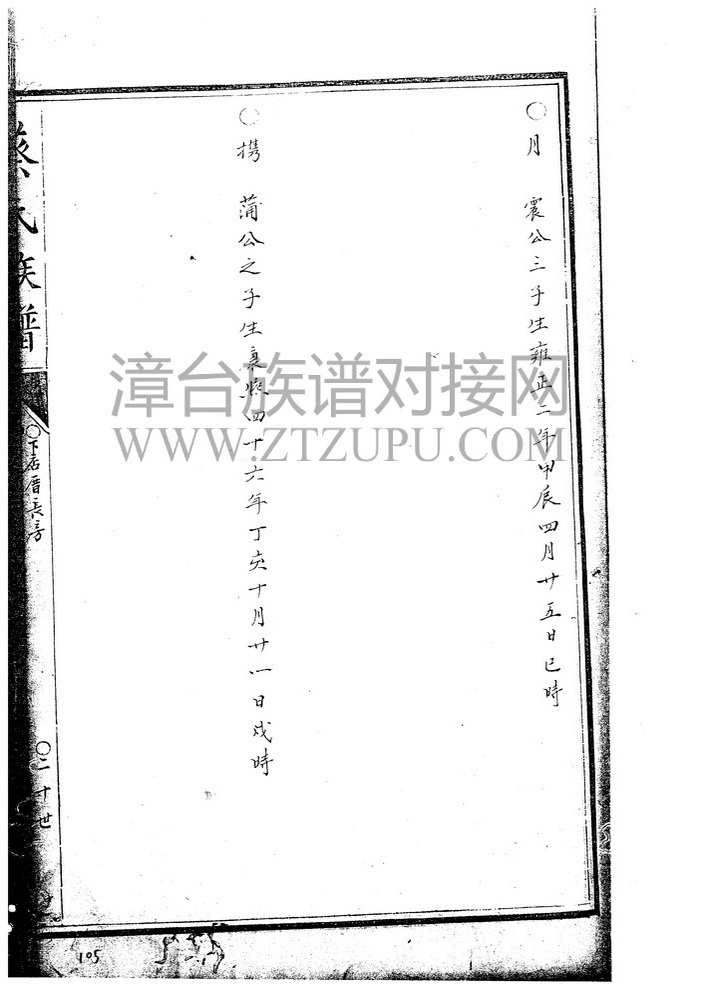 〇月 震公三子生雍正二年甲辰四月廿五日巳時
〇携 蒲公之子生康熙四十六年丁亥十月廿一日戌時
蔡氏族譜
〇下店厝長房
〇二十世
105
漳台族谱对接网
WWW.ZTZUPU.COM